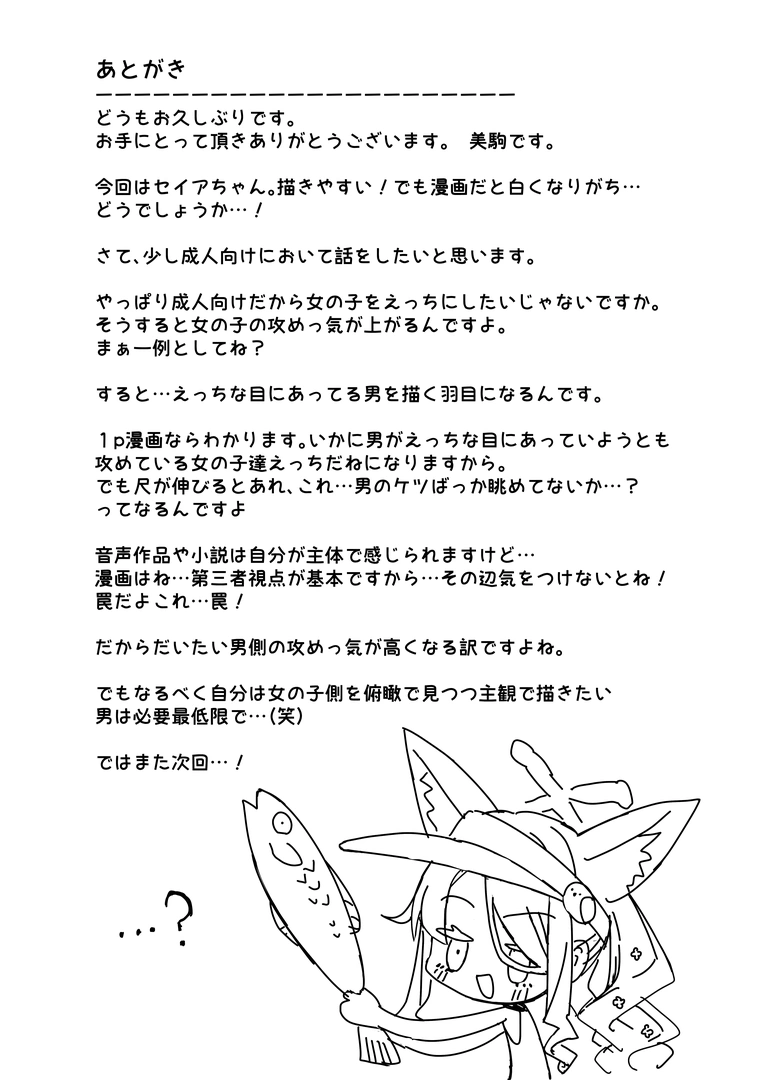 あとがき
どうもお久しぶりです。
お手にとって頂きありがとうございます。　美駒です。
今回はセイアちゃん。描きやすい！でも漫画だと白くなりがち…
どうでしょうか…！
さて、少し成人向けにおいて話をしたいと思います。
やっぱり成人向けだから女の子をえっちにしたいじゃないですか。
そうすると女の子の攻めっ気が上がるんですよ。
まぁ一例としてね？
すると…えっちな目にあってる男を描く羽目になるんです。
１p漫画ならわかります。いかに男がえっちな目にあっていようとも
攻めている女の子達えっちだねになりますから。
でも尺が伸びるとあれ、これ…男のケツばっか眺めてないか…？
ってなるんですよ
音声作品や小説は自分が主体で感じられますけど…
漫画はね…第三者視点が基本ですから…その辺気をつけないとね！
罠だよこれ…罠！
だからだいたい男側の攻めっ気が高くなる訳ですよね。
でもなるべく自分は女の子側を俯瞰で見つつ主観で描きたい
男は必要最低限で…(笑)
ではまた次回…！
…?